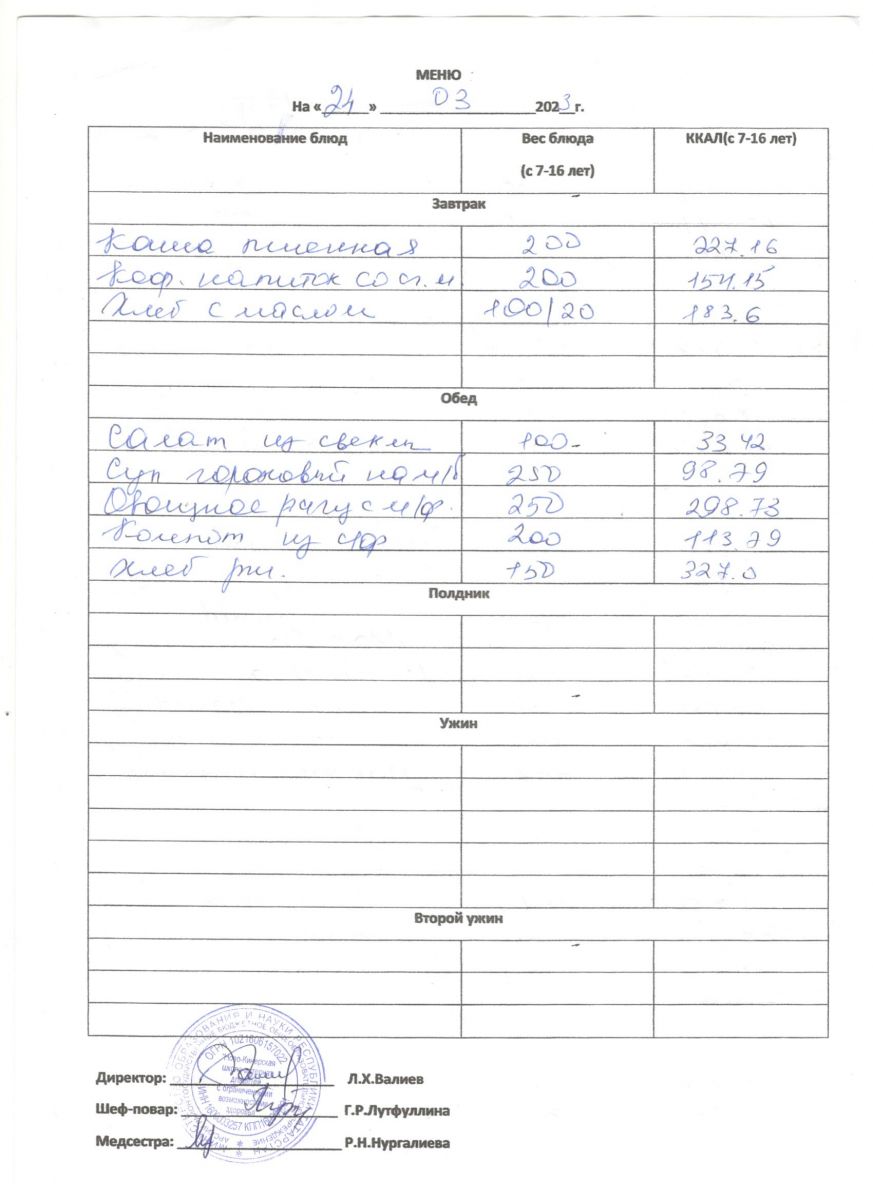 МЕНЮ
На «24» 03 2023 г.
Наименование блюд Вес блюда (с 7-16 лет) ККАЛ(с 7-16 лет)
Завтрак
Каша пшенная 200 227.16
Коф. напиток со сг. м 200 154.15
Хлеб с маслом 100/20 183.6
Обед
Салат из свеклы 100- 33 42
Суп гороховый на м/б 250 98.79
Овощное рагу с м/ф. 250 298.73
Компот из с/ф 200 113.79
Хлеб рж. 150 327.0
Полдник
Ужин
Второй ужин
Директор: Л.Х.Валиев
Шеф-повар: Г.Р.Лутфуллина
Медсестра: Р.Н.Нургалиева
ОГРН 1021606157022